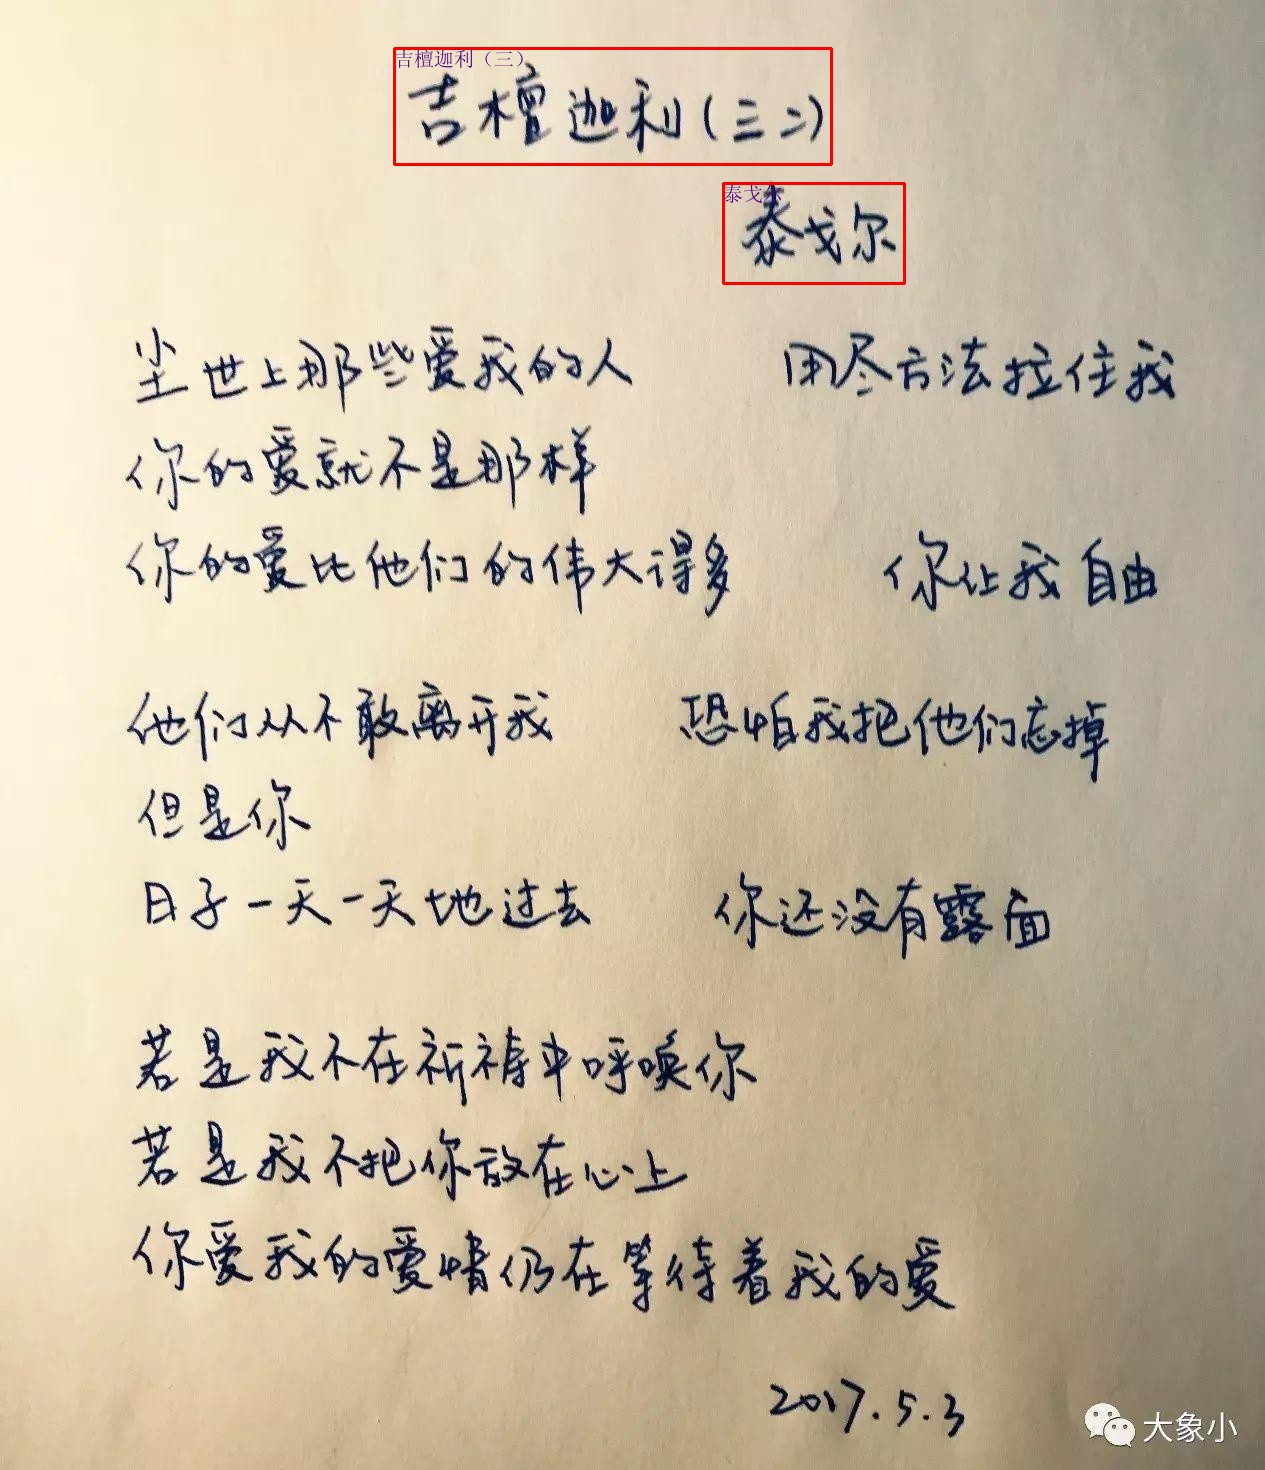 吉檀迦利（三）
吉檀迦利(三二)
泰戈尔
泰戈尔
尘世上那些爱我的人 用尽方法拉住我
你的爱就不是那样
你的爱比他们的伟大得多 你让我自由
他们从不敢离开我 恐怕我把他们忘掉
但是你
日子一天一天地过去 你还没有露面
若是我不在祈祷中呼唤你
若是我不把你放在心上
你爱我的爱情仍在等待着我的爱
2017.5.3
大象小